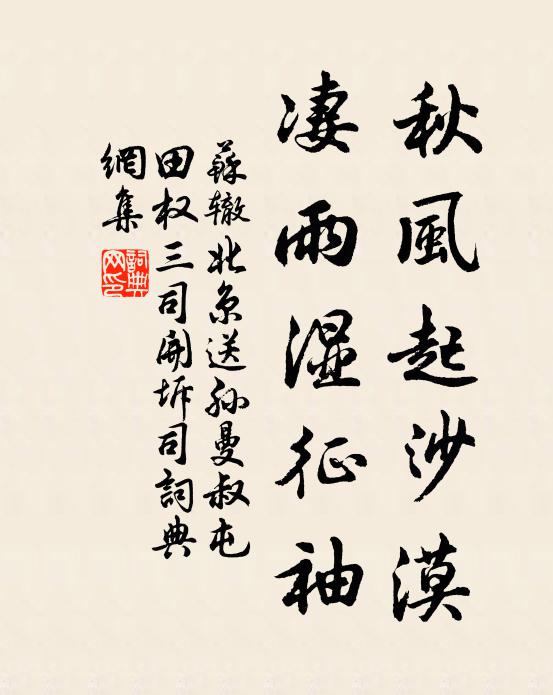 秋風起沙漠
凄雨湿征袖
蘇辙北京送孙曼叔屯
田权三司開坼司詞典
網集
詞典
网印